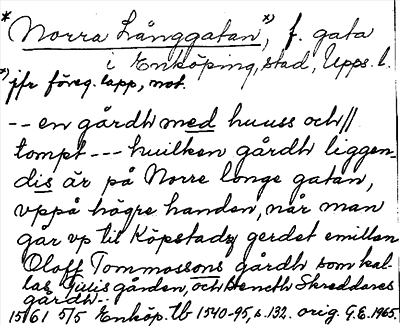 * Norra Långgatan*), f. gata
i Enköping, stad, Upps. l.
*) jfr föreg. lapp, not.
-- en gårdh med huuss och //
tompt --- huilken gårdh liggen-
dis är på Norre longe gatan,
vppå högre handen, når man
går vp til Köpstadz gerdet emillen
Oloff Tommossons gårdh som kal-
las Gulis gården, och Benedth Skreddares
gårdh --
1561 5/5 Enköp. tb 1540-95, s. 132. orig. G.E. 1965.